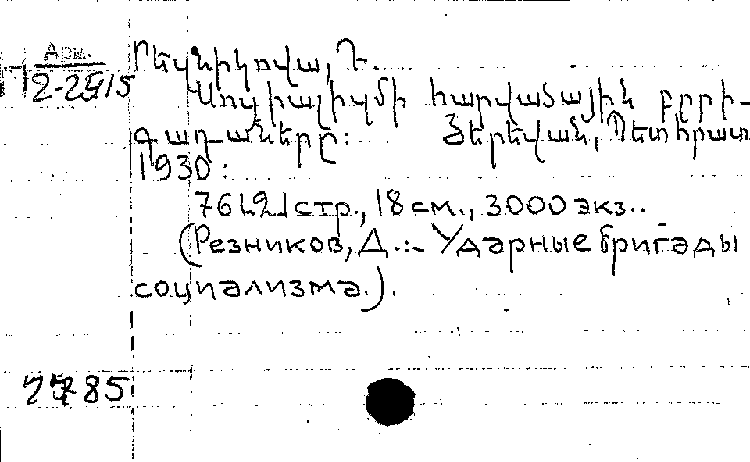 Арм.
2-2915
Րեզնիկովա, Դ.
Սոցիալիզմի հարվածային բրի-
գադաները: Յերեվան, Պետհրատ
1930:
76[2] стр., 18 см., 3.000 экз..
(Резников, Д.:- Ударные бригады
социализма.).
85